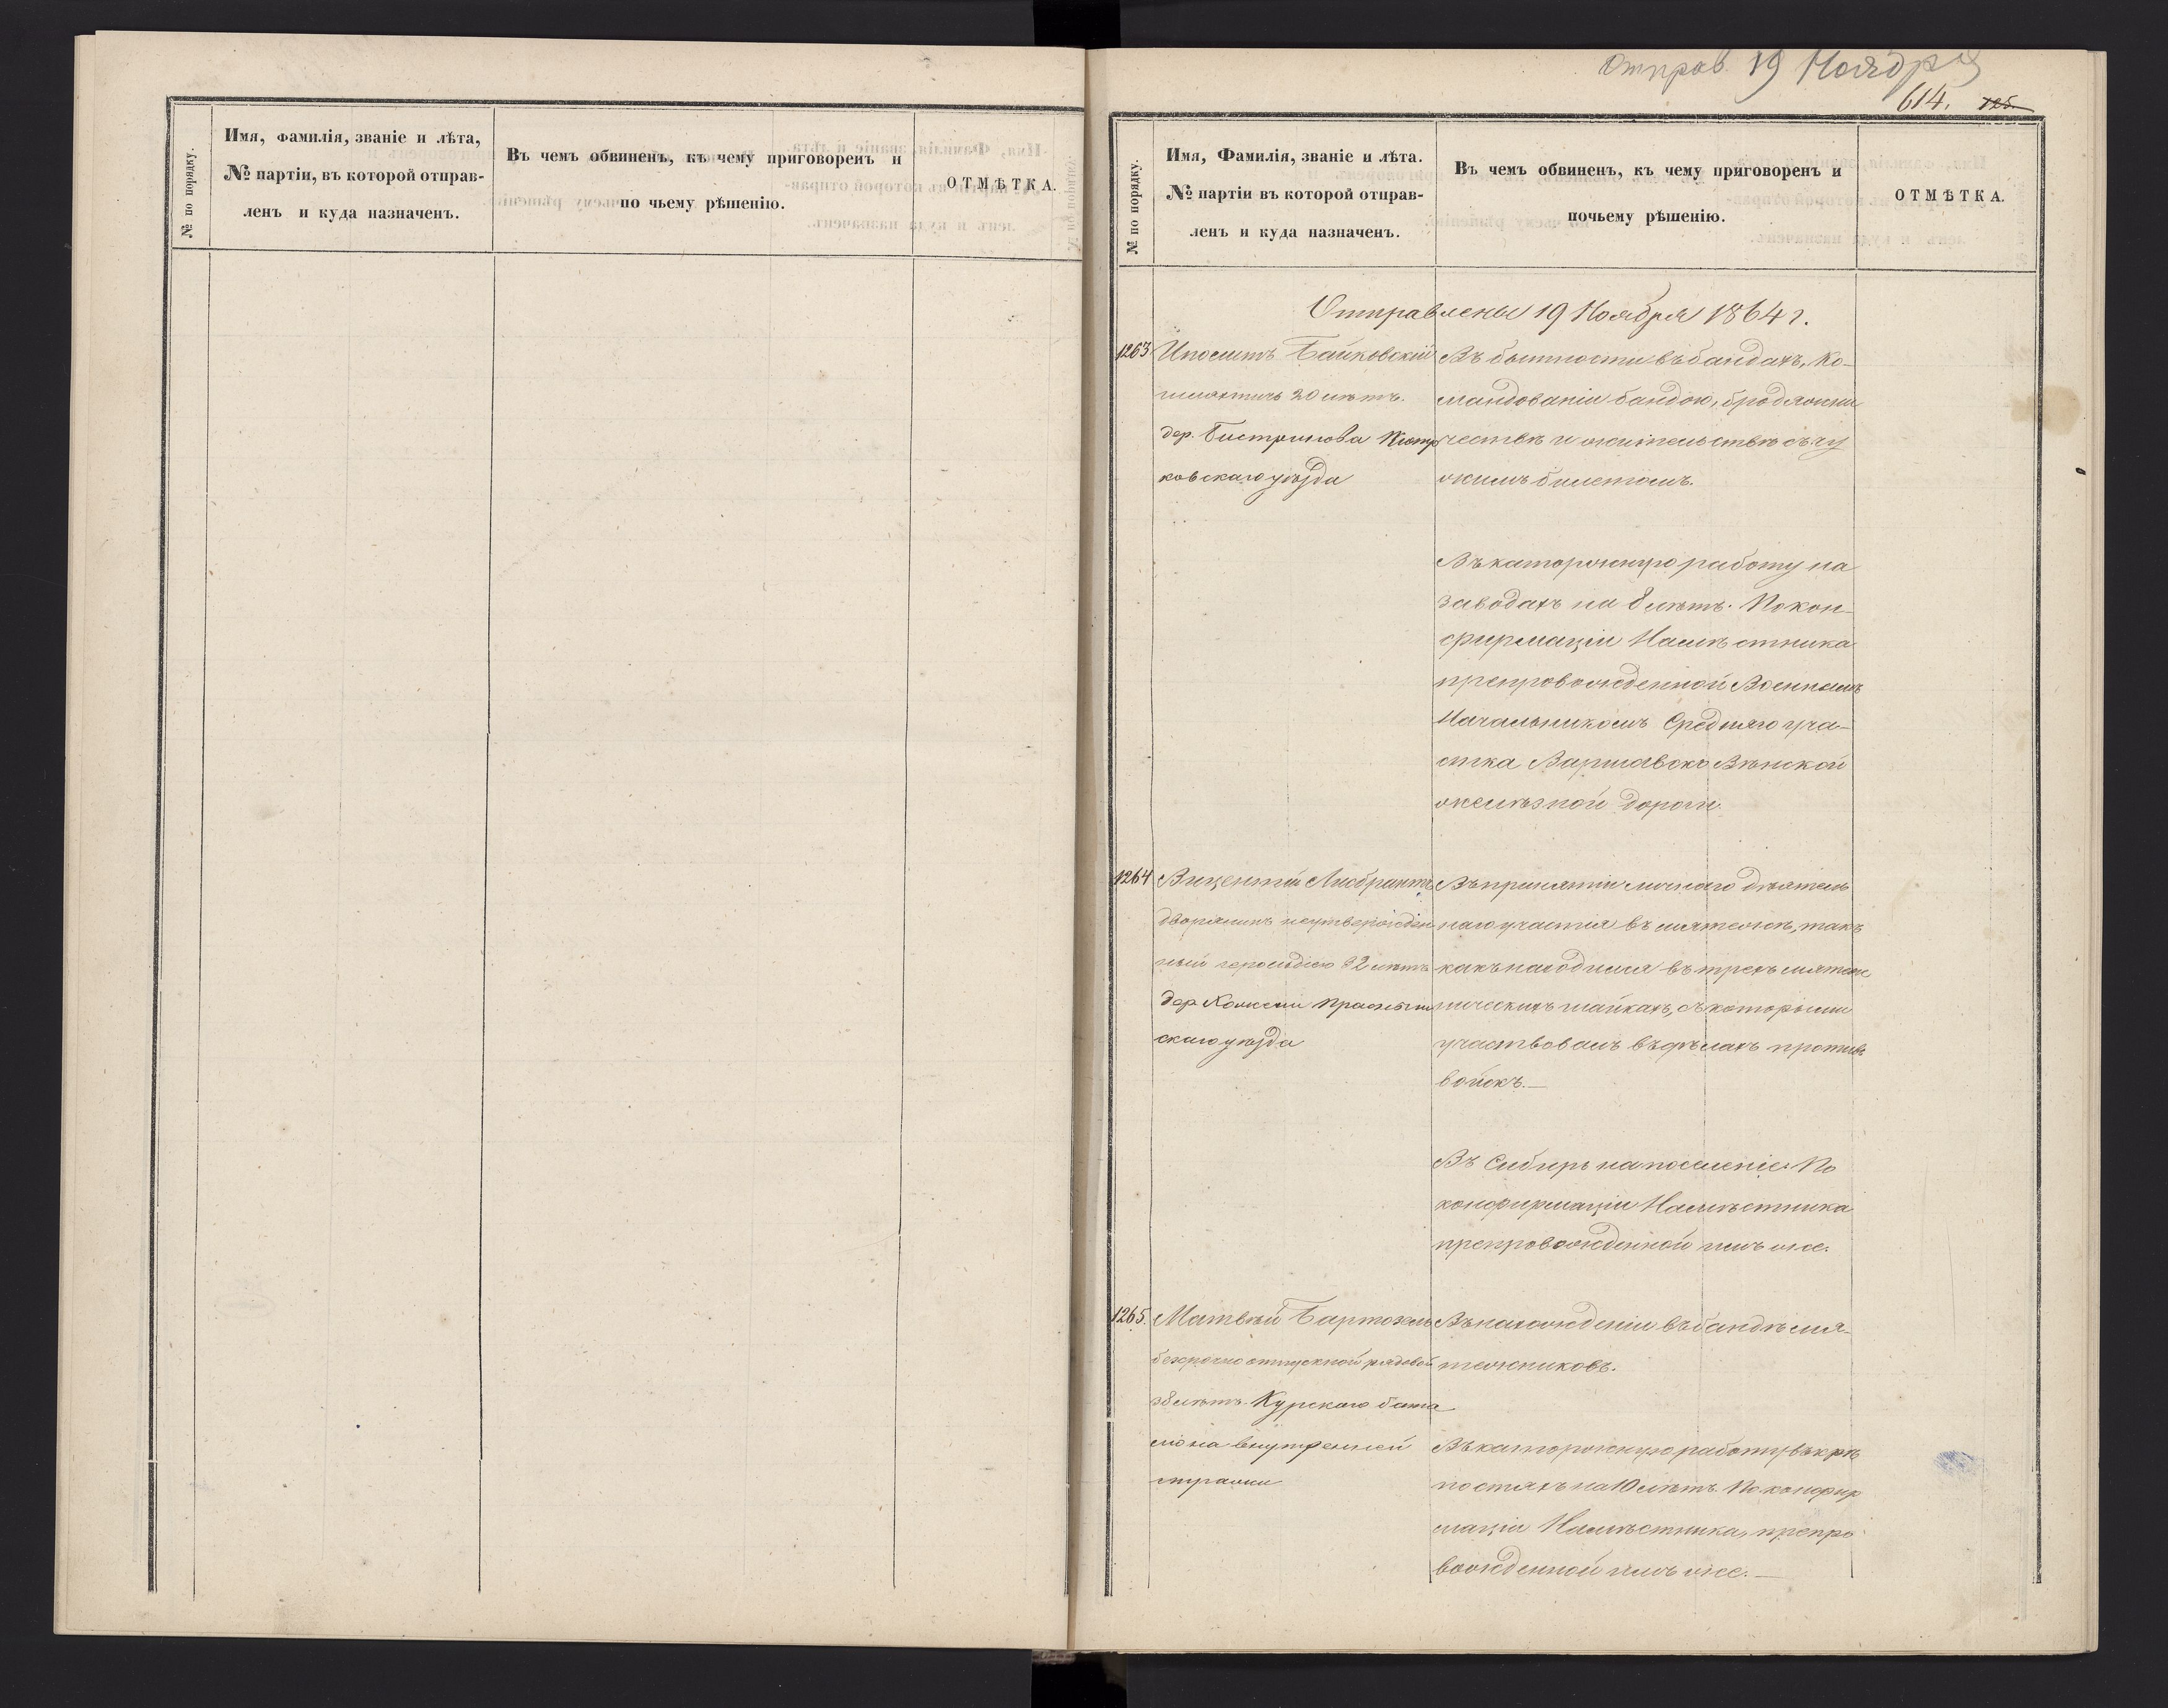 № по порядку.
Имя, Фамилія, званіе и лѣта,
№ партіи, въ которой отправ-
ленъ и куда назначенъ.
Въ чемъ обвиненъ, къ чему приговоренъ и
по чьему рѣшенію.
ОТМѢТКА.
Отправ. 19 Ноября
614. 125.
№ по порядку.
Имя, Фамилія, званіе и лѣта.
№ партіи въ которой отправ-
ленъ и куда назначенъ.
Въ чемъ обвиненъ, къ чему приговоренъ и
почьему рѣшенію.
ОТМѢТКА.
Отправлены 19 Ноября 1864 г.
1263
Иполитъ Байковскій
шляхтичъ 20 лѣтъ.
дер.
ковскаго уѣзда
Въ бытности въ бандахъ, ко-
мандованіи бандою, бродяжни
чествѣ и жительствѣ съ чу
жимъ билетомъ.
Въ каторжную работу на
заводахъ на 8 лѣтъ. По кон-
фирмаціи Намѣстника
препровожденной Военнымъ
Начальникомъ Средняго уча-
стка Варшавско Вѣнской
желѣзной дороги.
1264
Вицентій Лисбрантъ
дворянинъ неутвержден
ный герольдіею 32 лѣтъ
дер. Прасныш
скаго уѣзда
Въ принятіи личнаго дѣятель
наго участія въ мятежѣ, такъ
какъ находился въ трехъ мятеж
ническихъ шайкахъ, съ которыми
участвовалъ въ дѣлахъ противъ
войскъ.—
Въ Сибирь на поселеніе. По
конфирмаціи Намѣстника
препровожденной имъ же.
1265.
Матвѣй Бартозель
безсрочно отпускной рядовой
38 лѣтъ Курскаго бата
ліона внутренней
стражи
Въ нахожденіи въ бандѣ мя-
тежниковъ.
Въ каторжную работу въ крѣ
постяхъ на 10 лѣтъ. По конфир
маціи Намѣстника, препро
вожденной имъ же.—